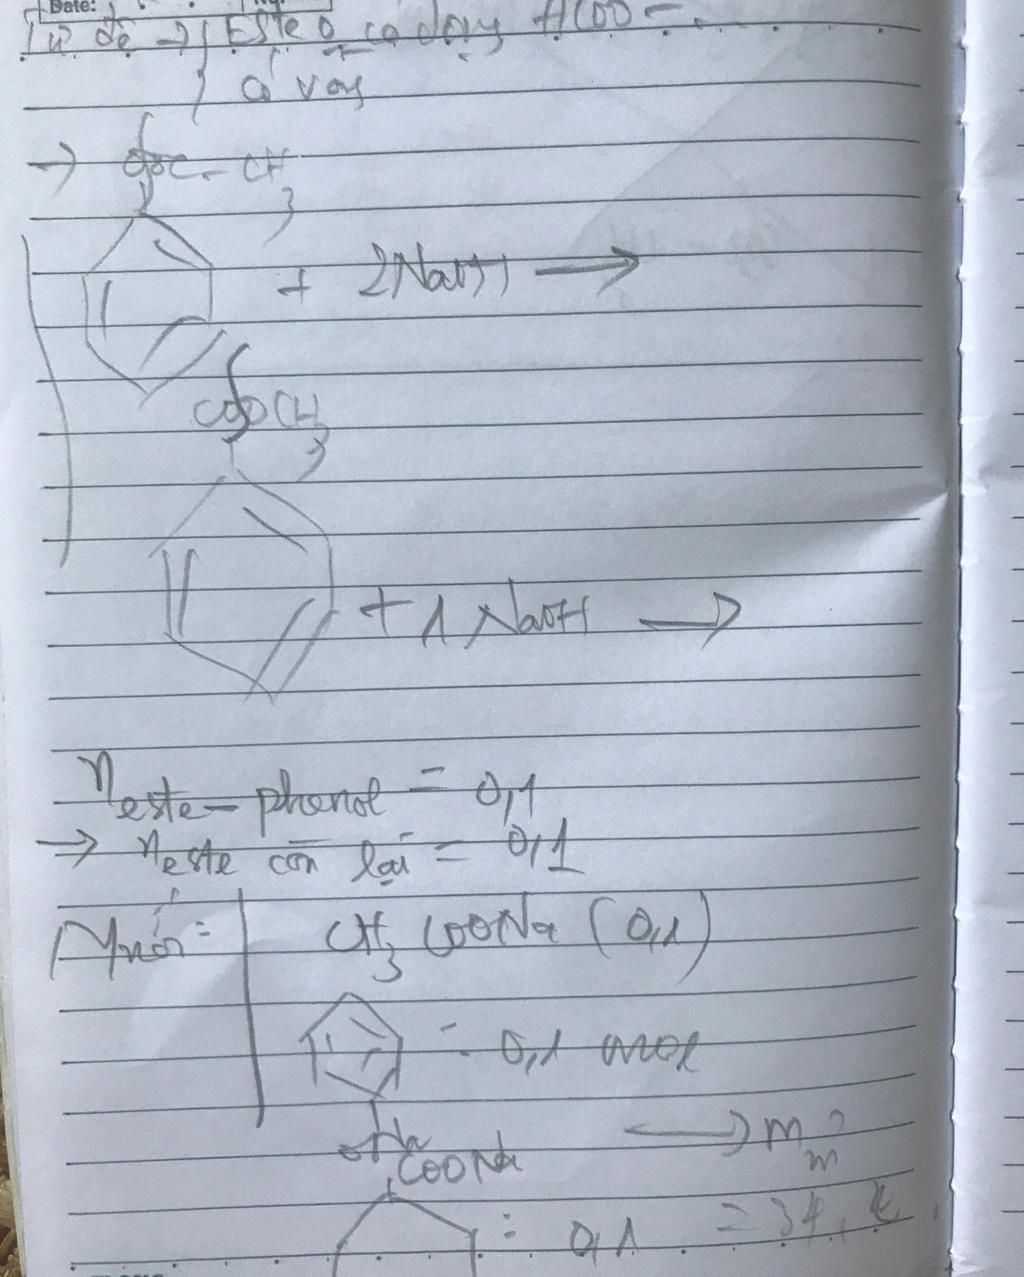 Date:
Từ đề → Este o có dạng HCOO -
có vòng
→ OOC - CH3
+ 2NaOH →
COOCH3
+ 1 NaOH →
n este - phenol = 0,1
→ n este còn lại = 0,1
muối: CH3COONa (0,1)
= 0,1 mol
ONa
→ m m?
COONa
: 0,1 = 34,